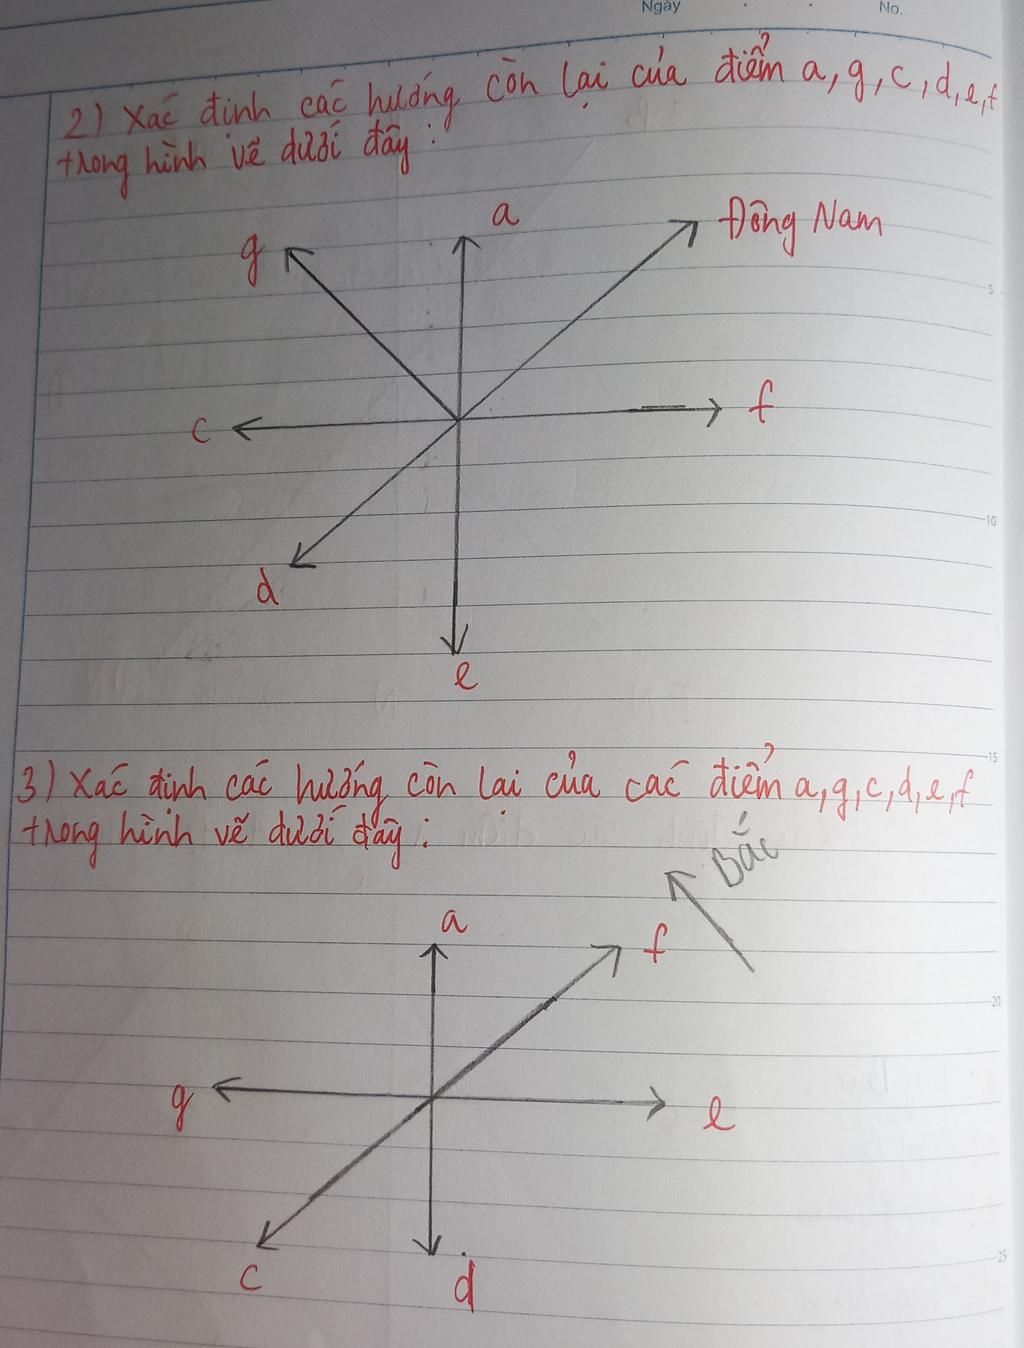 Ngày
No.
2) Xác định các hướng còn lại của điểm a, g, c, d, e, f
trong hình vẽ dưới đây :
a
Đông Nam
g
5
f
c
10
d
e
15
3) Xác định các hướng còn lại của các điểm a, g, c, d, e, f
trong hình vẽ dưới đây :
Bắc
a
f
20
g
e
25
c
d